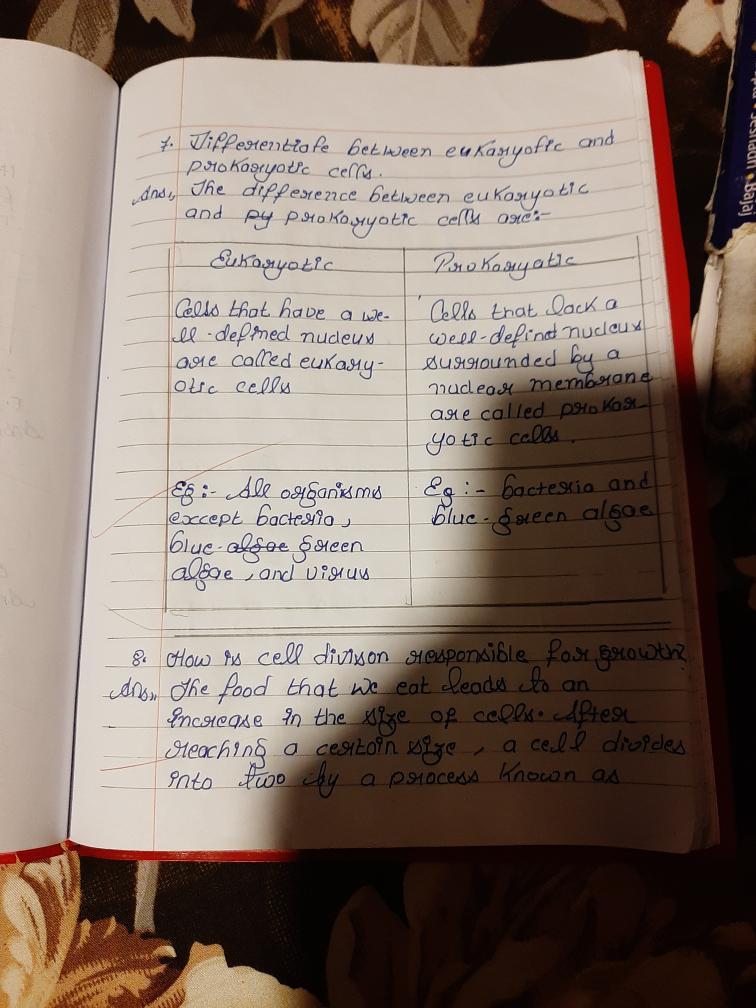 7. Differentiate between eukaryotic and
prokaryotic cells.
Ans,, The difference between eukaryotic
and py prokaryotic cells are:-
Eukaryotic
Cells that have a we-
ll-defined nucleus
are called eukary-
otic cells
Prokaryatic
Cells that lack a
well-defind nucleus
surrounded by a
nuclear membrane
are called prokar-
yotic cells.
Eg:- All organisms
except bacteria,
blue-algae green
algae, and virus
Eg:- bacteria and
blue-green algae
8. How is cell divison responsible for growth?
Ans,, The food that we eat leads to an
increase in the size of cells. After
reaching a certain size, a cell divides
into two by a process known as
Bajaj